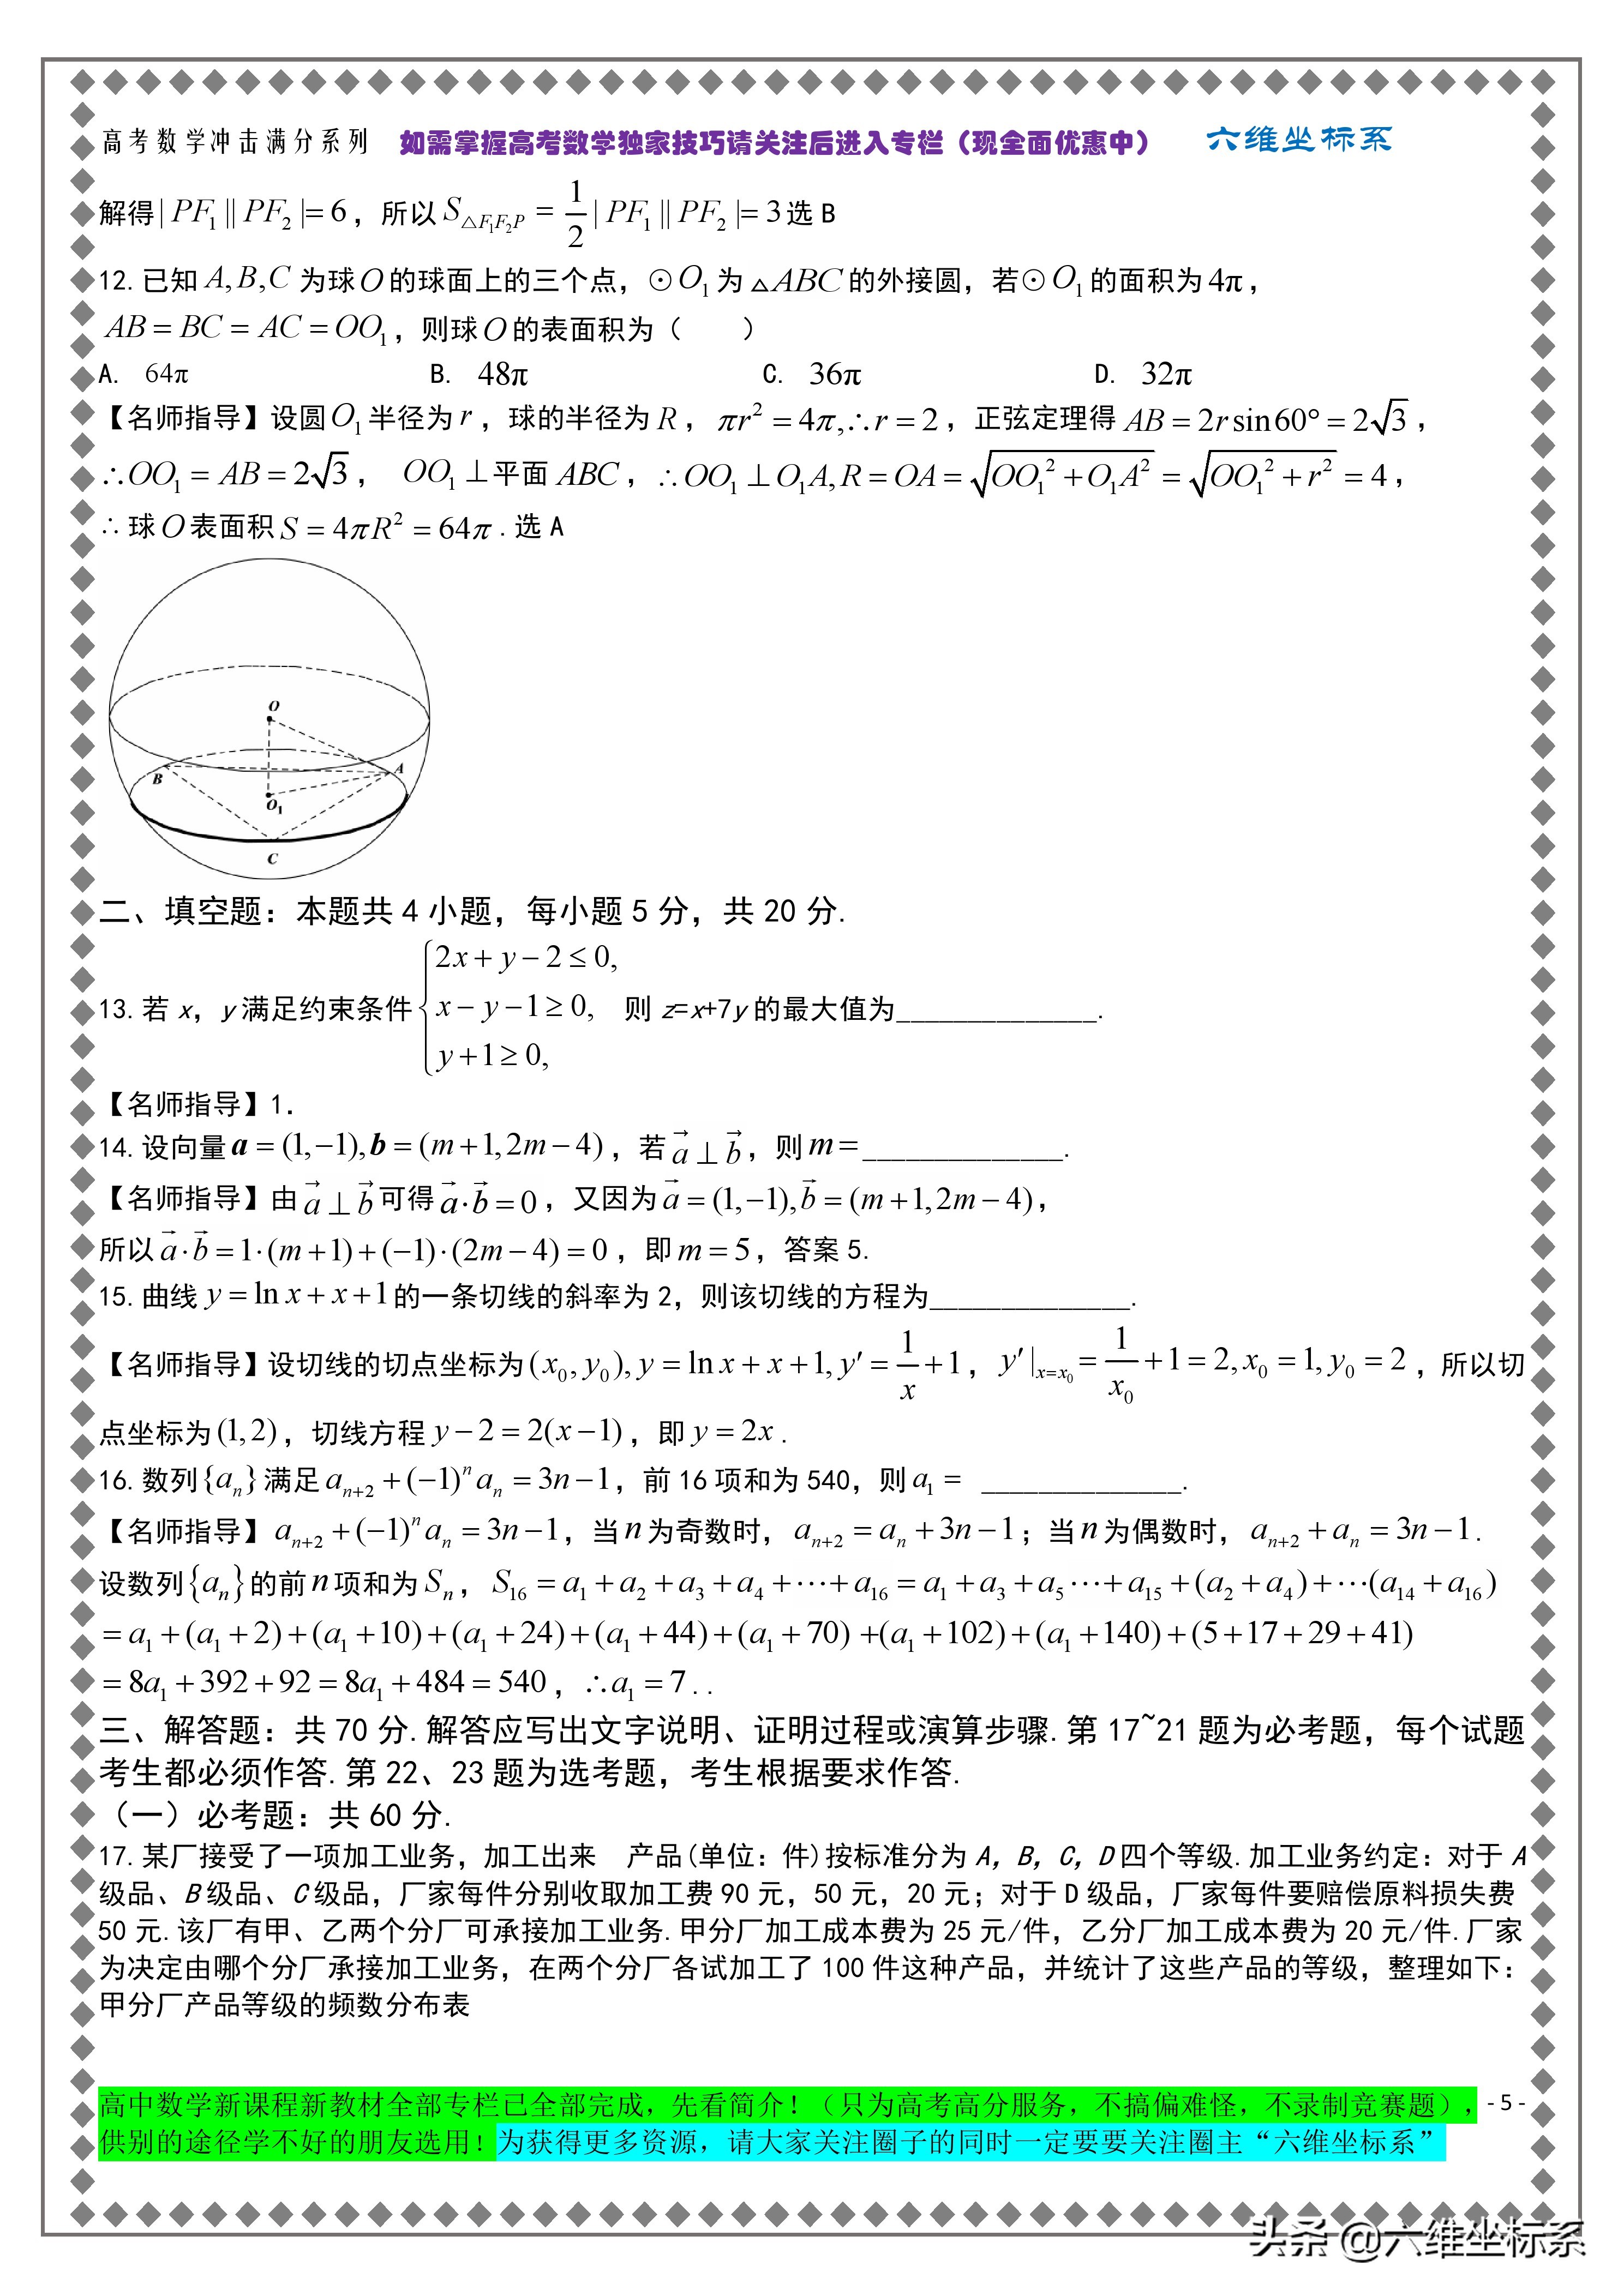 高考数学冲击满分系列 如需掌握高考数学独家技巧请关注后进入专栏（现全面优惠中） 六维坐标系
解得|PF₁||PF₂|=6，所以S△F₁F₂P = 1/2 |PF₁||PF₂|=3选 B
12.已知 A,B,C 为球O的球面上的三个点，⊙O₁为△ABC的外接圆，若⊙O₁的面积为4π，
AB=BC=AC=OO₁，则球O的表面积为（ ）
A. 64π B. 48π C. 36π D. 32π
【名师指导】设圆O₁半径为r，球的半径为R，πr²=4π,∴r=2，正弦定理得AB=2r sin60°=2√3，
∴OO₁=AB=2√3， OO₁⊥平面ABC，∴OO₁⊥O₁A,R=OA=√(OO₁²+O₁A²)=√(OO₁²+r²)=4，
∴球O表面积S=4πR²=64π.选 A
O
B
A
O₁
C
二、填空题：本题共 4 小题，每小题 5 分，共 20 分.
13.若 x，y 满足约束条件 {2x+y-2≤0, x-y-1≥0, y+1≥0, 则 z=x+7y 的最大值为______________.
【名师指导】1.
14.设向量a=(1,-1),b=(m+1,2m-4)，若a⃗⊥b⃗，则m=______________.
【名师指导】由a⃗⊥b⃗可得a⃗·b⃗=0，又因为a⃗=(1,-1),b⃗=(m+1,2m-4)，
所以a⃗·b⃗=1·(m+1)+(-1)·(2m-4)=0，即m=5，答案 5.
15.曲线y=ln x+x+1的一条切线的斜率为 2，则该切线的方程为______________.
【名师指导】设切线的切点坐标为(x₀,y₀),y=ln x+x+1,y′=1/x+1，y′|ₓ₌ₓ₀=1/x₀+1=2,x₀=1,y₀=2，所以切
点坐标为(1,2)，切线方程y-2=2(x-1)，即y=2x.
16.数列{aₙ}满足aₙ₊₂+(-1)ⁿaₙ=3n-1，前 16 项和为 540，则a₁= ______________.
【名师指导】aₙ₊₂+(-1)ⁿaₙ=3n-1，当n为奇数时，aₙ₊₂=aₙ+3n-1；当n为偶数时，aₙ₊₂+aₙ=3n-1.
设数列{aₙ}的前n项和为Sₙ，S₁₆=a₁+a₂+a₃+a₄+···+a₁₆=a₁+a₃+a₅···+a₁₅+(a₂+a₄)+···(a₁₄+a₁₆)
=a₁+(a₁+2)+(a₁+10)+(a₁+24)+(a₁+44)+(a₁+70)+(a₁+102)+(a₁+140)+(5+17+29+41)
=8a₁+392+92=8a₁+484=540，∴a₁=7..
三、解答题：共 70 分.解答应写出文字说明、证明过程或演算步骤.第 17~21 题为必考题，每个试题
考生都必须作答.第 22、23 题为选考题，考生根据要求作答.
（一）必考题：共 60 分.
17.某厂接受了一项加工业务，加工出来 产品(单位：件)按标准分为 A，B，C，D 四个等级.加工业务约定：对于 A
级品、B 级品、C 级品，厂家每件分别收取加工费 90 元，50 元，20 元；对于 D 级品，厂家每件要赔偿原料损失费
50 元.该厂有甲、乙两个分厂可承接加工业务.甲分厂加工成本费为 25 元/件，乙分厂加工成本费为 20 元/件.厂家
为决定由哪个分厂承接加工业务，在两个分厂各试加工了 100 件这种产品，并统计了这些产品的等级，整理如下：
甲分厂产品等级的频数分布表
高中数学新课程新教材全部专栏已全部完成，先看简介！（只为高考高分服务，不搞偏难怪，不录制竞赛题），- 5 -
供别的途径学不好的朋友选用！为获得更多资源，请大家关注圈子的同时一定要要关注圈主“六维坐标系”
头条 @六维坐标系